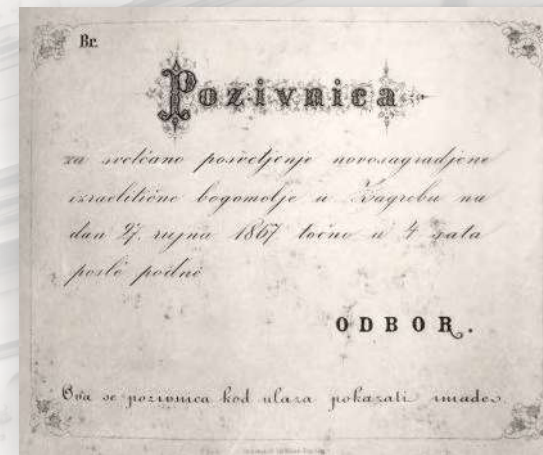 Br.
Pozivnica
za svečano posvetjenje novosagradjene
izraelitične bogomolje u Zagrebu na
dan 27. rujna 1867 točno u 4 sata
poslě podne
ODBOR.
Ova se pozivnica kod ulaza pokazati imade.